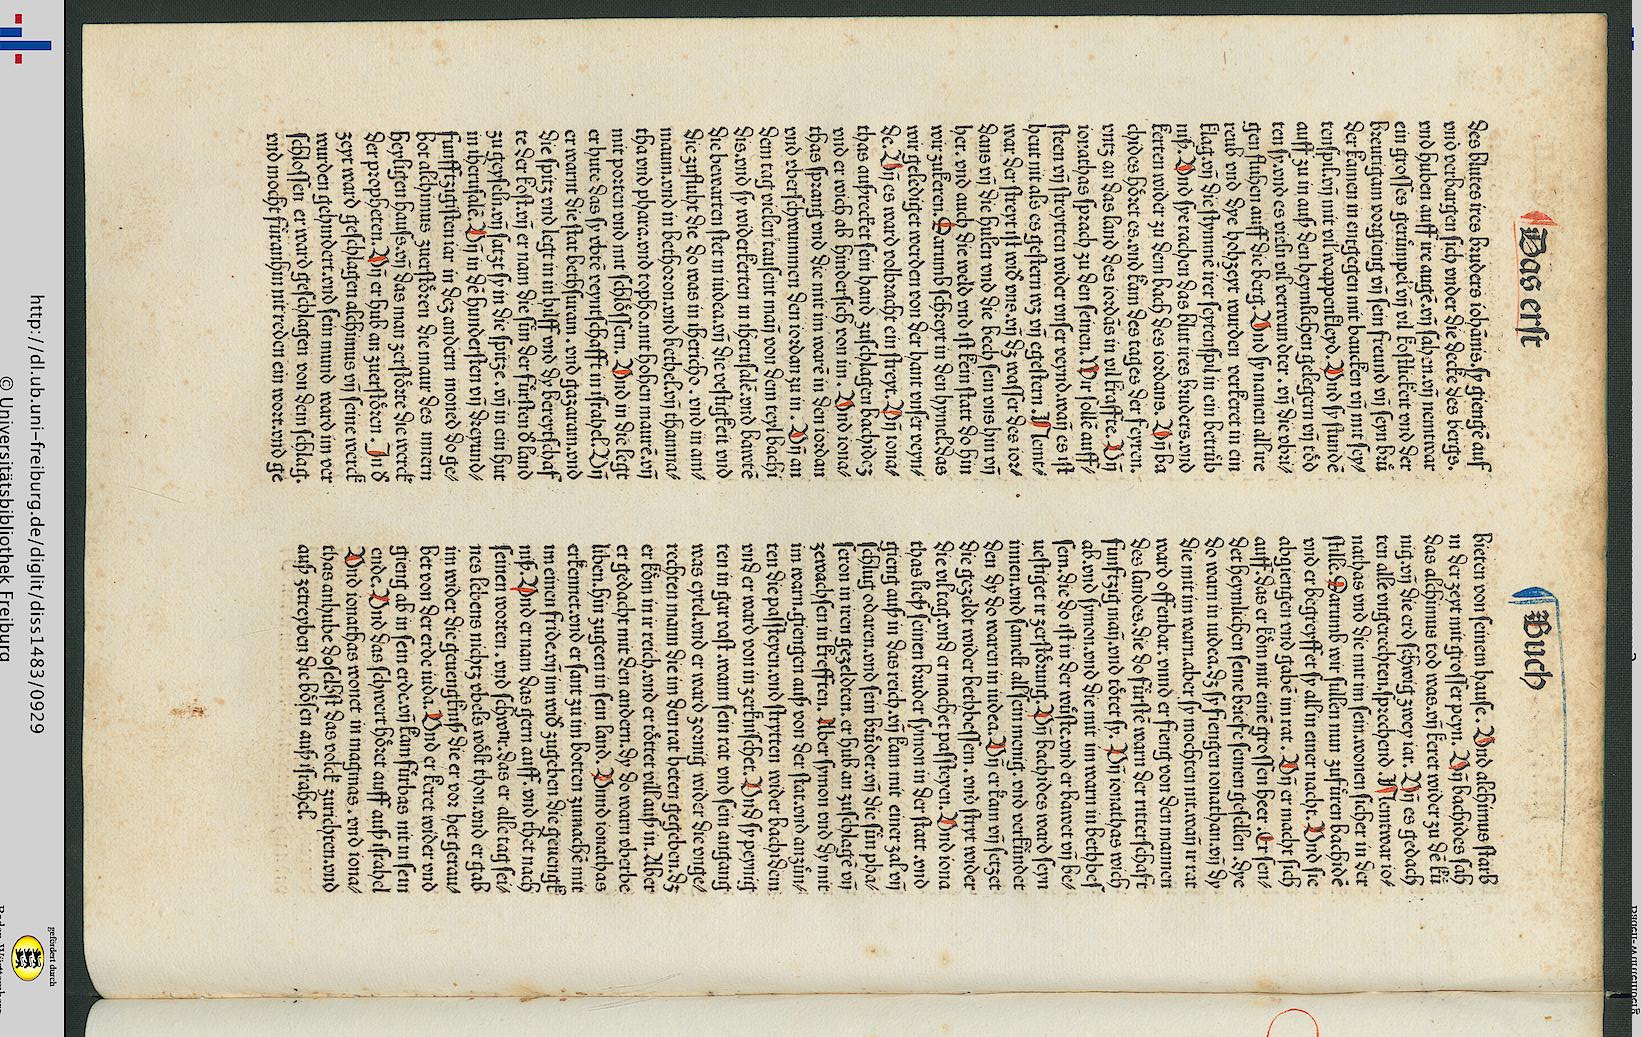 Das erst
des blutes ires bruders iohānis. sy giengē auf
vnd verbargen sich vnder die decke des bergs.
vnd huben auff ire augē. vn̄ sahen. vn̄ nemt war
ein grosses gerümpel vn̄ vil kostlickeit vnd der
breutigam vorgieng vn̄ sein freund vn̄ seyn brü
der kamen in entgegen mit baucken vn̄ mit sey/
tenspil. vn̄ mit vil wappenkleyd. Vnd sy stundē
auff zu in auß den heymlichen gelegern vn̄ tödten
sy. vnd es vieln vil verwundter. vn̄ die vbri/
gen fluhen auff die berg. Vnd sy namen all ire
reub vnd dye hohzeyt wurden verkeret in ein
klag. vn̄ die stymme irer seytenspil in ein betrüb
nuß. Vnd sye rachen das blut ires bruders. vnd
kerten wider zu dem bach des iordans. Vn̄ ba
chides höret es. vnd kam des tages der feyren.
vntz an das land des iordās in vil kraffte. Vn̄
ionathas sprach zu den seinen. Wir sollē auff/
steen vn̄ streytten wider vnser veynd. wan̄ es ist
heut nit als es gestern wz vn̄ eegestern. Nemt
war der streyt ist wid vns. vn̄ dz wasser des ior/
dans vn̄ die hulen vnd die bech sein vns hin vn̄
her. vnd auch die weld vnd ist kein statt do hin
wir zukeren. Darumb schreyt in den hymel. das
wir geledigt werden von der hant vnser veyn/
de. Vn̄ es ward volbracht ein streyt. Vn̄ iona/
thas aufrecket sein hand zuschlagen bachidez
vnd er wich ab hindersich von im. Vnd iona/
thas sprang vnd die mit im warē in den iordan
vnd vberschwummen den iordan zu in. Vn̄ an
dem tag vielen tausent man̄ von dem teyl bachi
dis. vnd sy widerkeren in iherusalē. vnd bawtē
die bewarten stet in iudea. vn̄ die vestigkeit vnd
die zufluht die do was in ihericho. vnd in am/
maum. vnd in bethoron. vnd bethel. vn̄ thamna/
tha vnd phara. vnd topho. mit hohen maurē. vn̄
mit porten vnd mit schlössern. Vnd in die legt
er hute das sy vbtē veyntschafft in israhel. Vn̄
er warnt die stat bethsuram. vnd gazaram. vnd
die spitz vnd legt in in hilff vnd dy bereytschaf
te der kost. vn̄ er nam die sün der fürsten d̄ land
zu geyseln. vn̄ satzt sy in die spitze. vn̄ in ein hut
in iherusalē. Vn̄ in dē hundersten vn̄ dreyund/
fünfftzigisten iar in dez andern moned do ge/
bot alchimus zuerstören die maur des innern
heyligen hauß. vn̄ das man zerstöre die werck
der propheten. Vn̄ er hub an zuerstören. In d̄
zeyt ward geschlagen alchimus vn̄ seine werck
wurden gehyndert. vnd sein mund ward im ver
schlossen er ward geschlagen von dem schlag.
vnd mocht füranhin nit reden ein wort. vnd ge
Buch
bieten von seinem hause. Vnd alchimus starb
in der zeyt mit grosser peyn. Vn̄ bachides sah
das alchimus tod was. vn̄ keret wider zu dē kü
nig. vn̄ die erd schwig zwey iar. Vn̄ es gedach
ten alle vngerechten. sprechend. Nemt war io/
nathas vnd die mit im sein. wonen sicher in der
stille. Darumb wir süllen nun zufüren bachidē
vnd er begreyffet sy all in einer nacht. Vnd sie
abgiengen vnd gabē im rat. Vn̄ er macht sich
auff. das er köm mit einē grossen heer. Er sen/
det heymlichen seine brieffe seinen gesellen. dye
do warn in iudea. dz sy fiengen ionathan. vn̄ dy
die mit im warn. aber sy mochten nit. wan̄ ir rat
ward offenbar. vnnd er fieng von den mannen
des landes. die do fürstē warn der ritterschaft
funftzig man̄. vnd tötet sy. Vn̄ ionathas wich
ab. vnd symon. vnd die mit im warn in bethbes
sem. die do ist in der wüste. vnd er bawet vn̄ be/
uestiget ir zerstörung. Vn̄ bachides ward seyn
innen. vnd samelt all sein meng. vnd verkündet
den dy do waren in iudea. Vn̄ er kam vn̄ setzet
die gezeldt wider bethbessem. vnd stryt wider
die vil tag. vnd er machet passteyen. Vnd iona
thas ließ seinen bruder symon in der statt. vnd
gieng auß in das reich. vn̄ kam mit einer zal vn̄
schlug odaren. vnd sein brüder. vn̄ die sün pha/
seron in iren gezeldten. er hub an zuschlagē vn̄
zewachsen in krefften. Aber symon vnd dy mit
im warn. giengen auß von der stat. vnd anzün/
ten die passteyen. vnd strytten wider bachidem
vnd er ward von in zerknischet. Vnd sy peynig
ten in gar vast. wann sein rat vnd sein angang
was eytel. vnd er ward zornig wider die vnge/
rechten mann die im den rat heten gegeben. dz
er köm in ir reich. vnd er tödtet vil auß in. Aber
er gedacht mit den andern. dy do warn vberbe
liben. hin zugeen in sein land. Vnnd ionathas
erkennet. vnd er sant zu im botten zumachē mit
im einen fride. vn̄ im wid zugeben die geuengk
nuß. Vnd er nam das gern auff. vnd thet nach
seinen worten. vnd schwur. das er alle tag sei/
nes lebens nichtz vbels wölt thon. vnd er gab
im wider die geuengknuß die er vor het gerau/
bet von der erde iuda. Vnd er keret wider vnd
gieng ab in sein erde. vn̄ kam fürbas nit in sein
ende. Vnd das schwert höret auff auß israhel
Vnd ionathas wonet in magmas. vnd iona/
thas anhube doselbst das volck zurichten. vnd
auß zetreyben die bösen auß israhel.
http://dl.ub.uni-freiburg.de/diglit/diss1483/0929
© Universitätsbibliothek Freiburg
gefördert durch